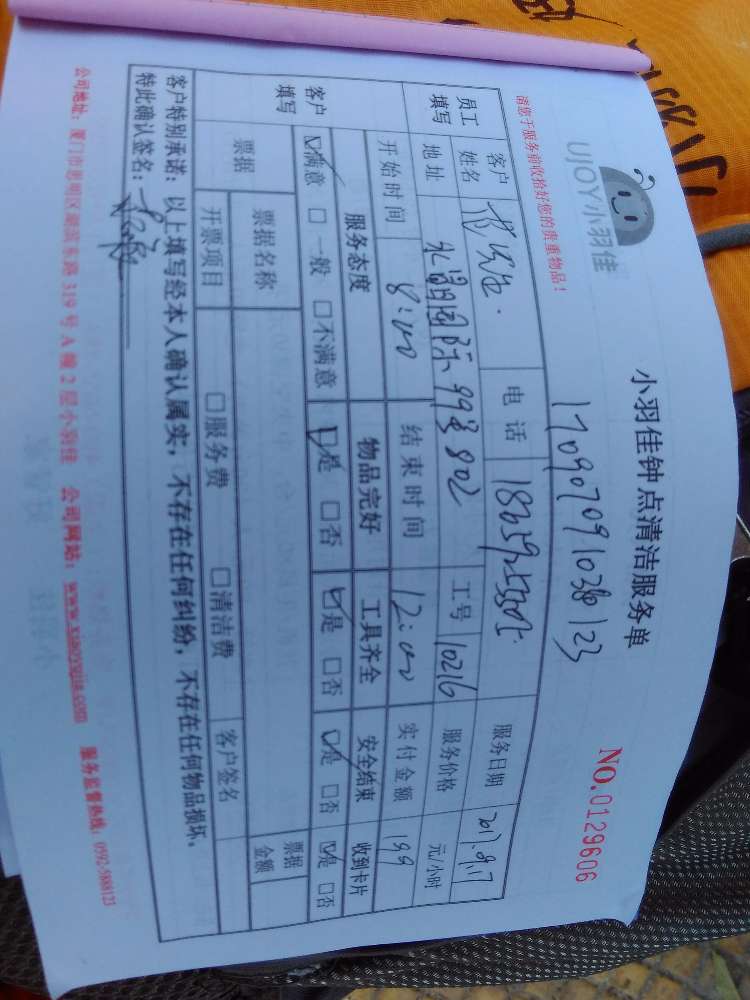 UJOY小羽佳
小羽佳钟点清洁服务单
NO.0129606
请您于服务前收拾好您的贵重物品!
员工填写 客户姓名 电话 服务日期 2017.09.17
地址 永昌国际99号802 工号 10216 服务价格 元/小时
开始时间 8:00 结束时间 12:00 实付金额 199
客户填写 服务态度 物品完好 工具齐全 安全结束 收到卡片
☑满意 □一般 □不满意 ☑是 □否 ☑是 □否 ☑是 □否 ☑是 □否
票据 票据名称 票据金额
开票项目 □服务费 □清洁费 客户签名
客户特别承诺:以上填写经本人确认属实,不存在任何纠纷,不存在任何物品损坏。
特此确认签名:
公司地址:厦门市思明区湖滨东路319号A幢2层小羽佳 公司网站:www.xiaoyujia.com 服务监督热线:0592-5888123